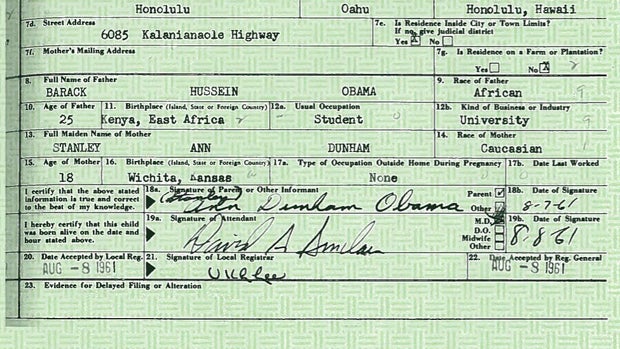 Honolulu Oahu Honolulu, Hawaii
7d. Street Address 7e. Is Residence Inside City or Town Limits?
6085 Kalanianaole Highway If no, give judicial district
Yes X No
7f. Mother's Mailing Address 7g. Is Residence on a Farm or Plantation?
Yes No X
8. Full Name of Father 9. Race of Father
BARACK HUSSEIN OBAMA African 9
10. Age of Father 11. Birthplace (Island, State or Foreign Country) 12a. Usual Occupation 12b. Kind of Business or Industry
25 Kenya, East Africa Student 0 University 9
13. Full Maiden Name of Mother 14. Race of Mother
STANLEY ANN DUNHAM Caucasian 1
15. Age of Mother 16. Birthplace (Island, State or Foreign Country) 17a. Type of Occupation Outside Home During Pregnancy 17b. Date Last Worked
18 Wichita, Kansas None
I certify that the above stated information is true and correct to the best of my knowledge. 18a. Signature of Parent or Other Informant Parent Other 18b. Date of Signature
(Stanley) Ann Dunham Obama 8-7-61
I hereby certify that this child was born alive on the date and hour stated above. 19a. Signature of Attendant M.D. D.O. Midwife Other 19b. Date of Signature
David A Sinclair 8-8-61
20. Date Accepted by Local Reg. 21. Signature of Local Registrar 22. Date Accepted by Reg. General
AUG -8 1961 U K L Lee AUG -8 1961
23. Evidence for Delayed Filing or Alteration